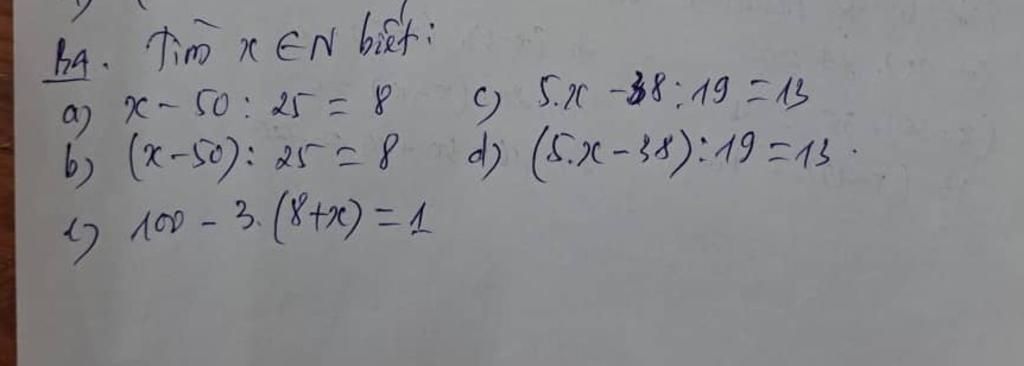 B4. Tìm x ∈ N biết:
a) x - 50 : 25 = 8 c) 5.x - 38 : 19 = 13
b) (x - 50) : 25 = 8 d) (5.x - 38) : 19 = 13.
e) 100 - 3.(8+x) = 1